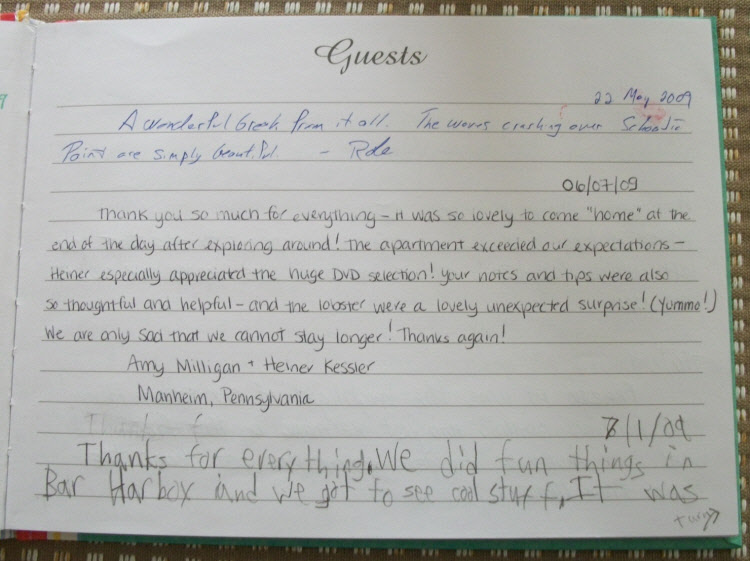 Guests
22 May 2009
A wonderful break from it all. The waves crashing over Schoodic
Point are simply beautiful. -
06/07/09
Thank you so much for everything - it was so lovely to come "home" at the
end of the day after exploring around! The apartment exceeded our expectations -
Heiner especially appreciated the huge DVD selection! Your notes and tips were also
so thoughtful and helpful - and the lobster were a lovely unexpected surprise! (Yummo!)
We are only sad that we cannot stay longer! Thanks again!
Amy Milligan + Heiner Kessler
Manheim, Pennsylvania
7/1/09
Thanks for everything. We did fun things in
Bar Harbox and we got to see cool stuff. It was
turn